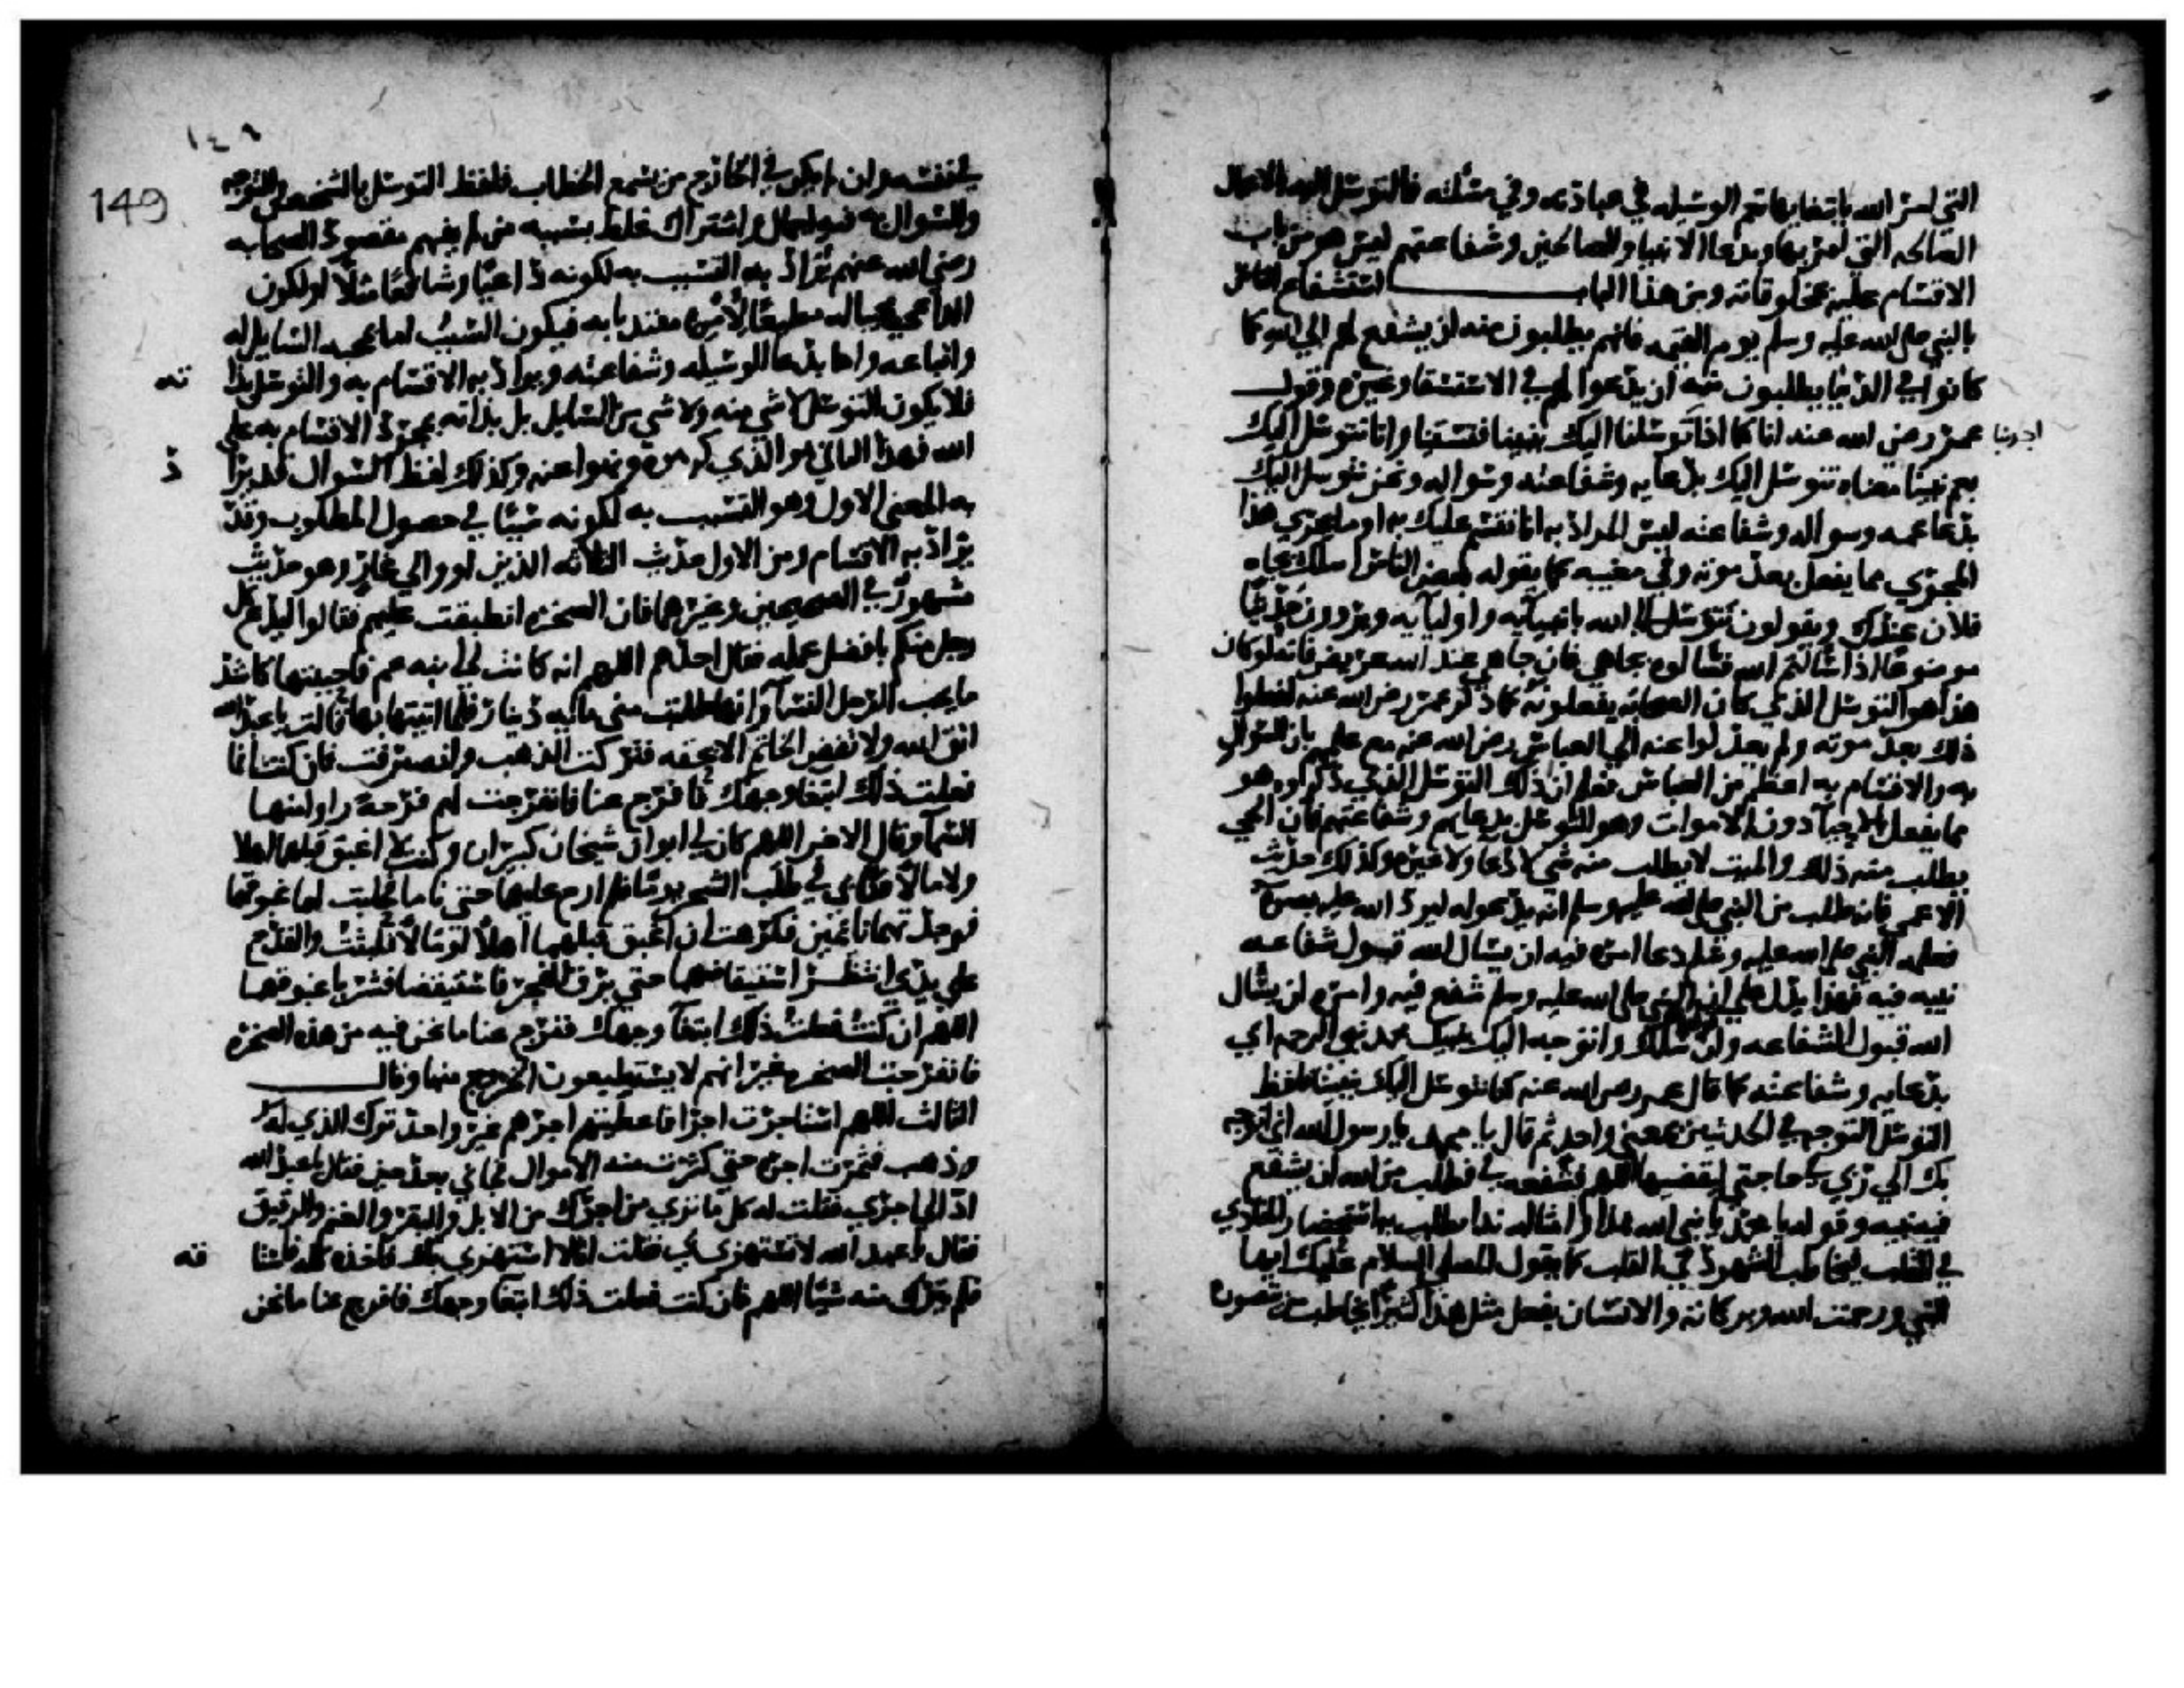 التي امر الله بابتغايها تعم الوسيله في عبادته وفي مسئلته فالتوسل اليه بالاعمال
الصالحه التي امر بها وبدعا الانبيا والصالحين وشفاعتهم ليس هو من باب
الاقسام عليه بمخلوقاته ومن هذا الباب استشفاع الناس
بالنبي صلى الله عليه وسلم يوم القيمه فانهم يطلبون منه ان يشفع لهم الى الله كما
كانوا في الدنيا يطلبون منه ان يدعوا لهم في الاستسقا وغيره وقول
عمر رضي الله عنه انا كنا اذا توسلنا اليك بنبينا فتسقينا وانا نتوسل اليك
اجدبنا
بعم نبينا معناه نتوسل اليك بدعايه وشفاعته وسواله ونحن نتوسل اليك
بدعا عمه وسواله وشفاعته ليس المراد به انا نقسم عليك به او ما يجري هذا
المجرى مما يفعل بعد موته وفي مغيبه كما يقوله بعض الناس اسلك بجاه
فلان عندك ويقولون نتوسل الى الله بانبيآيه واوليآيه ويروون حديثا
موضوعا اذا سالتم الله فسالوه بجاهي فان جاهي عند الله عريض فانه لو كان
هذا هو التوسل الذي كان الصحابه يفعلونه كما ذكر عمر رضي الله عنه لفعلوا
ذلك بعد موته ولم يعدلوا عنه الى العباس رضي الله عنه مع علمهم بان السوال
به والاقسام به اعظم من العباس فعلم ان ذلك التوسل الذي ذكروه هو
مما يفعل بالاحيآ دون الاموات وهو التوسل بدعايهم وشفاعتهم فان الحي
يطلب منه ذلك والميت لا يطلب منه شي لا دعا ولا غيره وكذلك حديث
الاعمى فانه طلب من النبي صلى الله عليه وسلم انه يدعو له ليرد الله عليه بصره
فعلمه النبي صلى الله عليه وسلم دعا امره فيه ان يسال الله قبول شفاعه
نبيه فيه فهذا يدل على ان النبي صلى الله عليه وسلم شفع فيه وامره ان يسال
الله قبول الشفاعه وان اسلك واتوجه اليك بنبيك محمد نبي الرحمه اي
بدعايه وشفاعته كما قال عمر رضي الله عنه كنا نتوسل اليك بنبينا فلفظ
التوسل التوجه في الحديثين بمعنى واحد ثم قال يا محمد يا رسول الله اني اتوجه
بك الى ربي في حاجتي ليقضيها اللهم فشفعه في فطلب من الله ان يشفع
فيه نبيه وقوله يا محمد يا نبي الله هذا وامثاله ندا يطلب به استحضار المنادى
في القلب ليخاطب المشهود في القلب كما يقول المصلي السلام عليك ايها
النبي ورحمت الله وبركاته والانسان يفعل مثل هذا كثيرا يخاطب من يتصوره
١٤٩
149
في نفسه وان لم يكن في الخارج من يسمع الخطاب فلفظ التوسل بالشخص والتوجه
والسوال به فيه اجمال واشتراك غلط بسببه من لم يفهم مقصود الصحابه
رضي الله عنهم يراد به التسبب به لكونه داعيا وشافعا مثلا او لكون
الداعي محبا له مطيعا لأمره مقتديا به فيكون السبب اما لمحبه السايل له
واتباعه واما بدعا الوسيله وشفاعته ويراد به الاقسام به والتوسل بذا
ته
فلا يكون التوسل لا شي منه ولا شي من السايل بل بذاته بمجرد الاقسام به على
الله فهذا الثاني هو الذي كرهوه ونهوا عنه وكذلك لفظ السوال قد يرا
د
به المعنى الاول وهو التسبب به لكونه سببا في حصول المطلوب وقد
يراد به الاقسام ومن الاول حديث الثلاثه الذين اووا الى غار وهو حديث
مشهور في الصحيحين وغيرهما فان الصخره انطبقت عليهم فقالوا ليدع كل
رجل منكم بافضل عمله فقال احدهم اللهم انه كانت لي ابنه عم فاحببتها كاشد
ما يحب الرجل النسآ وانها طلبت مني مايه دينار فلما اتيتها بها قالت يا عبد الله
اتق الله ولا تفض الخاتم الا بحقه فتركت الذهب وانصرفت فان كنت انما
فعلت ذلك ابتغا وجهك فافرج عنا فانفرجت لهم فرجه راوا منها
السمآ وقال الاخر اللهم كان لي ابوان شيخان كبيران وكنت لا اغبق قبلهما اهلا
ولا مالا فنآى في طلب الشجر يوما فلم ارح عليهما حتى ناما فحلبت لهما غبوقهما
فوجدتهما نائمين فكرهت ان اغبق قبلهما اهلا او مالا فلبثت والقدح
على يدي انتظر استيقاضهما حتى برق الفجر فاستيقضا فشربا غبوقهما
اللهم ان كنت فعلت ذلك ابتغآ وجهك ففرج عنا ما نحن فيه من هذه الصخره
فانفرجت الصخره غير انهم لا يستطيعون الخروج منها وقال
الثالث اللهم استاجرت اجرا فاعطيتهم اجرهم غير واحد ترك الذي له
وذهب فثمرت اجره حتى كثرت منه الاموال فجآني بعد حين فقال يا عبد الله
اد الي اجري فقلت له كل ما ترى من اجرك من الابل والبقر والغنم والرقيق
فقال يا عبد الله لا تستهزي بي فقلت انا لا استهزي بك فاخذه كله فاستا
قه
فلم يترك منه شيا اللهم فان كنت فعلت ذلك ابتغا وجهك فافرج عنا ما نحن